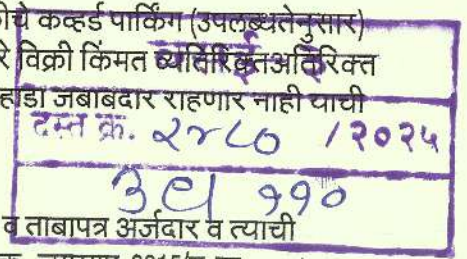 चे कव्हर्ड पार्किंग (उपलब्धतेनुसार)
रे विक्री किंमत व्यतिरिक्तअतिरिक्त
हाडा जबाबदार राहणार नाही याची
दस्त क्र. २४८० / २०२५
११०
व ताबापत्र अर्जदार व त्याची